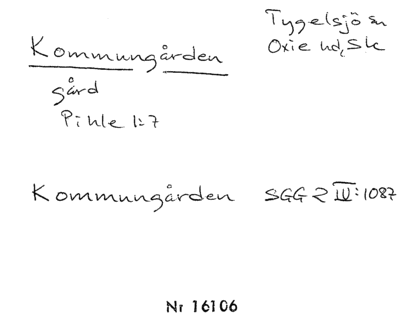 Kommungården
gård
Pihle 1:7
Tygelsjö sn
Oxie hd, Sk
Kommungården SGG R IV:1087
Nr 16106